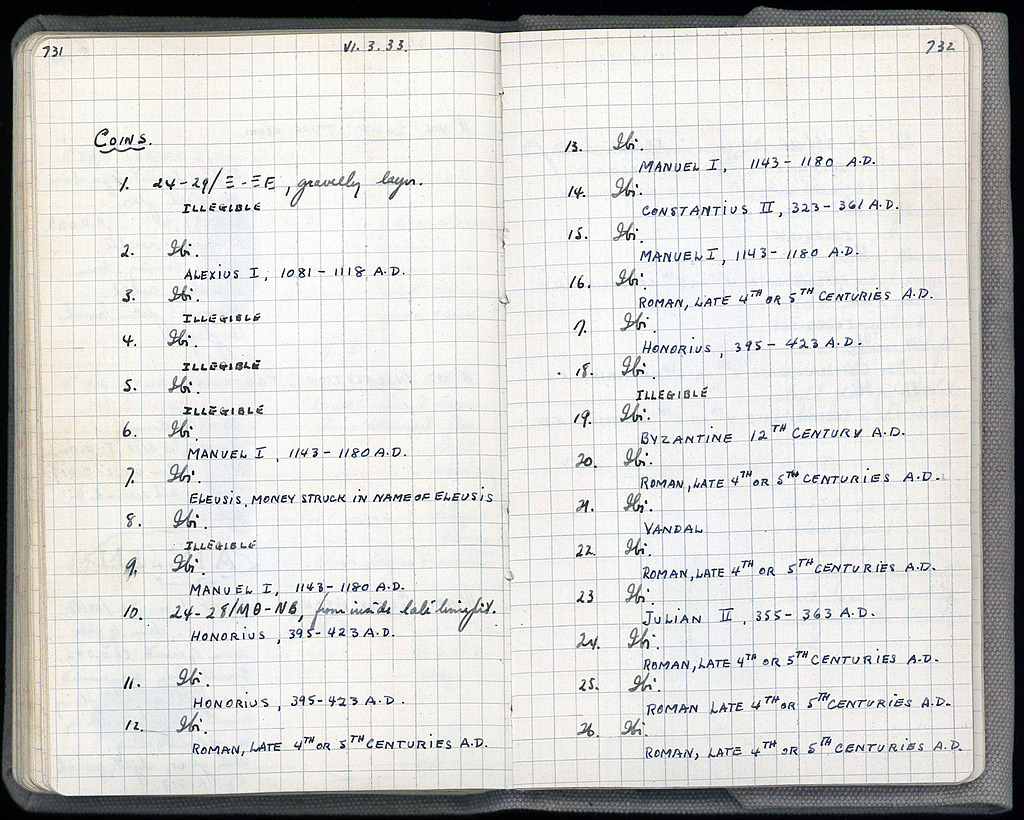 731
VI. 3. 33.
COINS.
1. 24-29/Ξ-ΞΕ, gravelly layer.
ILLEGIBLE
2. Ibi.
ALEXIUS I, 1081-1118 A.D.
3. Ibi.
ILLEGIBLE
4. Ibi.
ILLEGIBLE
5. Ibi.
ILLEGIBLE
6. Ibi.
MANUEL I, 1143-1180 A.D.
7. Ibi.
ELEUSIS, MONEY STRUCK IN NAME OF ELEUSIS
8. Ibi.
ILLEGIBLE
9. Ibi.
MANUEL I, 1143-1180 A.D.
10. 24-28/ΜΘ-ΝΒ, from inside late limepit.
HONORIUS, 395-423 A.D.
11. Ibi.
HONORIUS, 395-423 A.D.
12. Ibi.
ROMAN, LATE 4TH OR 5TH CENTURIES A.D.
732
13. Ibi.
MANUEL I, 1143-1180 A.D.
14. Ibi.
CONSTANTIUS II, 323-361 A.D.
15. Ibi.
MANUEL I, 1143-1180 A.D.
16. Ibi.
ROMAN, LATE 4TH OR 5TH CENTURIES A.D.
17. Ibi.
HONORIUS, 395-423 A.D.
18. Ibi.
ILLEGIBLE
19. Ibi.
BYZANTINE 12TH CENTURY A.D.
20. Ibi.
ROMAN, LATE 4TH OR 5TH CENTURIES A.D.
21. Ibi.
VANDAL
22. Ibi.
ROMAN, LATE 4TH OR 5TH CENTURIES A.D.
23 Ibi.
JULIAN II, 355-363 A.D.
24. Ibi.
ROMAN, LATE 4TH OR 5TH CENTURIES A.D.
25. Ibi.
ROMAN LATE 4TH OR 5TH CENTURIES A.D.
26. Ibi.
ROMAN, LATE 4TH OR 5TH CENTURIES A.D.